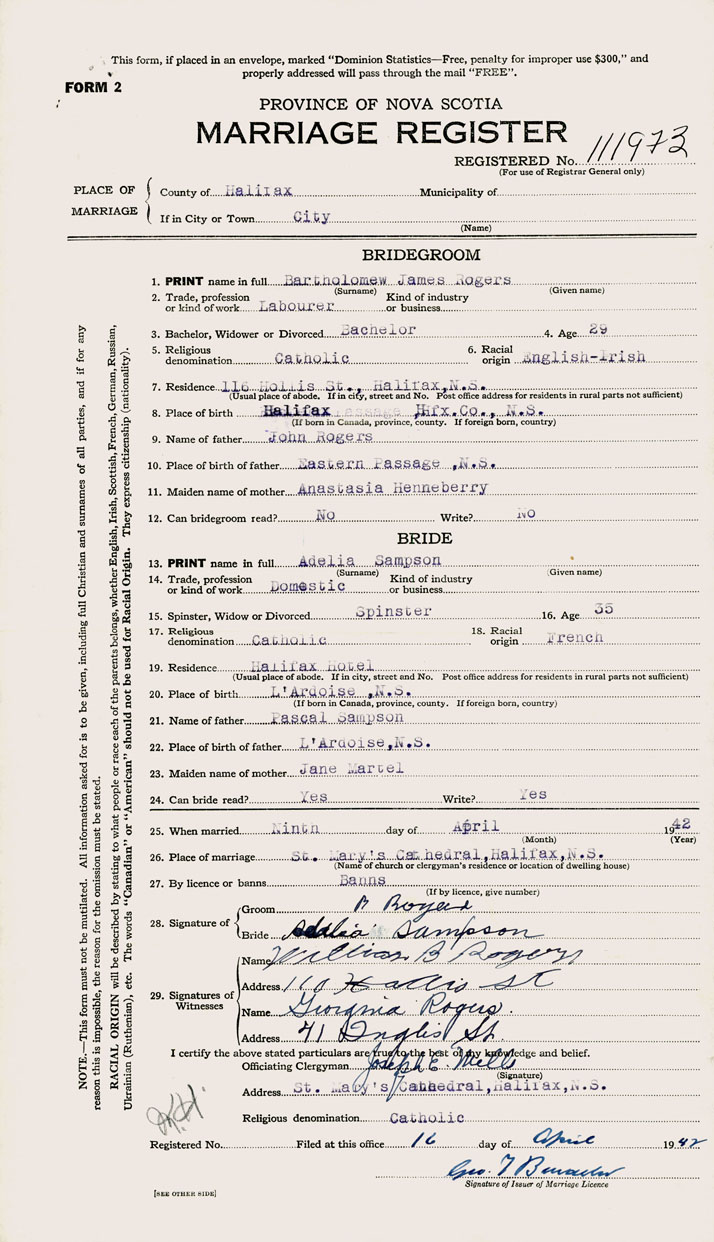 This form, if placed in an envelope, marked "Dominion Statistics—Free, penalty for improper use $300," and
properly addressed will pass through the mail "FREE".
FORM 2
PROVINCE OF NOVA SCOTIA
MARRIAGE REGISTER
REGISTERED No. 111973
(For use of Registrar General only)
PLACE OF MARRIAGE
County of Halifax Municipality of
If in City or Town City
(Name)
BRIDEGROOM
1. PRINT name in full Bartholomew James Rogers
(Surname) (Given name)
2. Trade, profession or kind of work Labourer Kind of industry or business
3. Bachelor, Widower or Divorced Bachelor 4. Age 29
5. Religious denomination Catholic 6. Racial origin English-Irish
7. Residence 116 Hollis St., Halifax,N.S.
(Usual place of abode. If in city, street and No. Post office address for residents in rural parts not sufficient)
8. Place of birth Halifax Hfx.Co., N.S.
(If born in Canada, province, county. If foreign born, country)
9. Name of father John Rogers
10. Place of birth of father Eastern Passage ,N.S.
11. Maiden name of mother Anastasia Henneberry
12. Can bridegroom read? No Write? No
BRIDE
13. PRINT name in full Adelia Sampson
(Surname) (Given name)
14. Trade, profession or kind of work Domestic Kind of industry or business
15. Spinster, Widow or Divorced Spinster 16. Age 35
17. Religious denomination Catholic 18. Racial origin French
19. Residence Halifax Hotel
(Usual place of abode. If in city, street and No. Post office address for residents in rural parts not sufficient)
20. Place of birth L'Ardoise,N.S.
(If born in Canada, province, county. If foreign born, country)
21. Name of father Pascal Sampson
22. Place of birth of father L'Ardoise,N.S.
23. Maiden name of mother Jane Martel
24. Can bride read? Yes Write? Yes
25. When married Ninth day of April 1942
(Month) (Year)
26. Place of marriage St. Mary's Cathedral,Halifax,N.S.
(Name of church or clergyman's residence or location of dwelling house)
27. By licence or banns Banns
(If by licence, give number)
28. Signature of
Groom B
Bride Adelia Sampson
29. Signatures of Witnesses
Name William B Rogers
Address 110 Hollis St
Name Georgina Rogers.
Address 41 Inglis St.
I certify the above stated particulars are true to the best of my knowledge and belief.
Officiating Clergyman Joseph E. Mills
(Signature)
Address St. Mary's Cathedral,Halifax,N.S.
Religious denomination Catholic
Registered No. Filed at this office 16 day of April 1942
Geo. T
Signature of Issuer of Marriage Licence
[SEE OTHER SIDE]
NOTE.—This form must not be mutilated. All information asked for is to be given, including full Christian and surnames of all parties, and if for any
reason this is impossible, the reason for the omission must be stated.
RACIAL ORIGIN will be described by stating to what people or race each of the parents belongs, whether English, Irish, Scottish, French, German, Russian,
Ukrainian (Ruthenian), etc. The words "Canadian" or "American" should not be used for Racial Origin. They express citizenship (nationality).